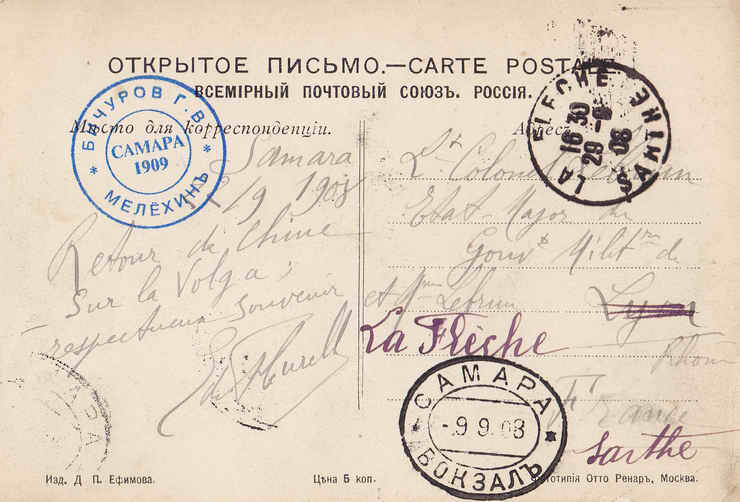 ОТКРЫТОЕ ПИСЬМО.—CARTE POSTALE
ВСЕМІРНЫЙ ПОЧТОВЫЙ СОЮЗЪ. РОССІЯ.
Мѣсто для корреспонденціи.
Адресъ
* БИЧУРОВ Г.В. *
САМАРА
1909
МЕЛЁХИНЪ
LA FLECHE
16 30
29 -9
08
SARTHE
Samara
19 1908
Retour de Chine
Sur la Volga,
respectueux souvenir
Lt Colonel Lebrun
Etat Major du
Gouvt Militre de
et Mme Lebrun
Lyon
La Flèche
Rhône
France
Sarthe
САМАРА
-9 9.08
ВОКЗАЛЪ
Изд. Д П. Ефимова.
Цѣна 5 коп.
Фототипія Отто Ренаръ, Москва.